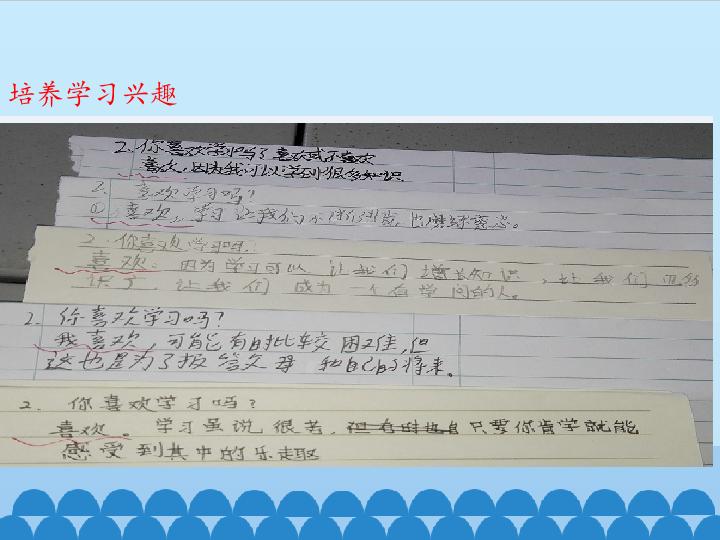 培养学习兴趣
2.你喜欢学习吗？喜欢或不喜欢
喜欢，因为我可以学到很多知识
2. 喜欢学习吗？
喜欢，学习让我们不断进步，
2.你喜欢学习吗？
喜欢：因为学习可以让我们增长知识，让我们
让我们成为一个有学问的人。
2.你喜欢学习吗？
我喜欢，可能有时比较困难，但
这也是为了报答父母和自己的将来。
2. 你喜欢学习吗？
喜欢。学习虽说很苦，但有时也只要你肯学就能
感受到其中的乐趣